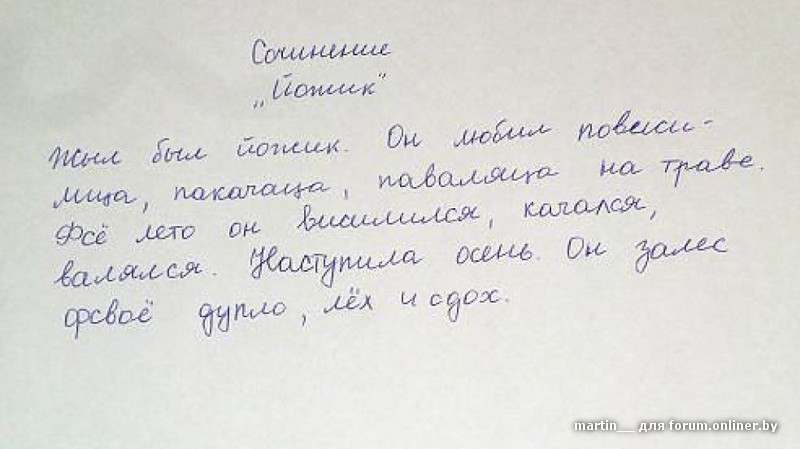 Сочинение
„Йожик"
Жыл был йожик. Он любил повиси-
лица, пакачаца, паваляца на траве.
Фсё лето он висилился, качался,
валялся. Наступила осень. Он залес
фсваё дупло, лёх и сдох.
martin__ для forum.onliner.by